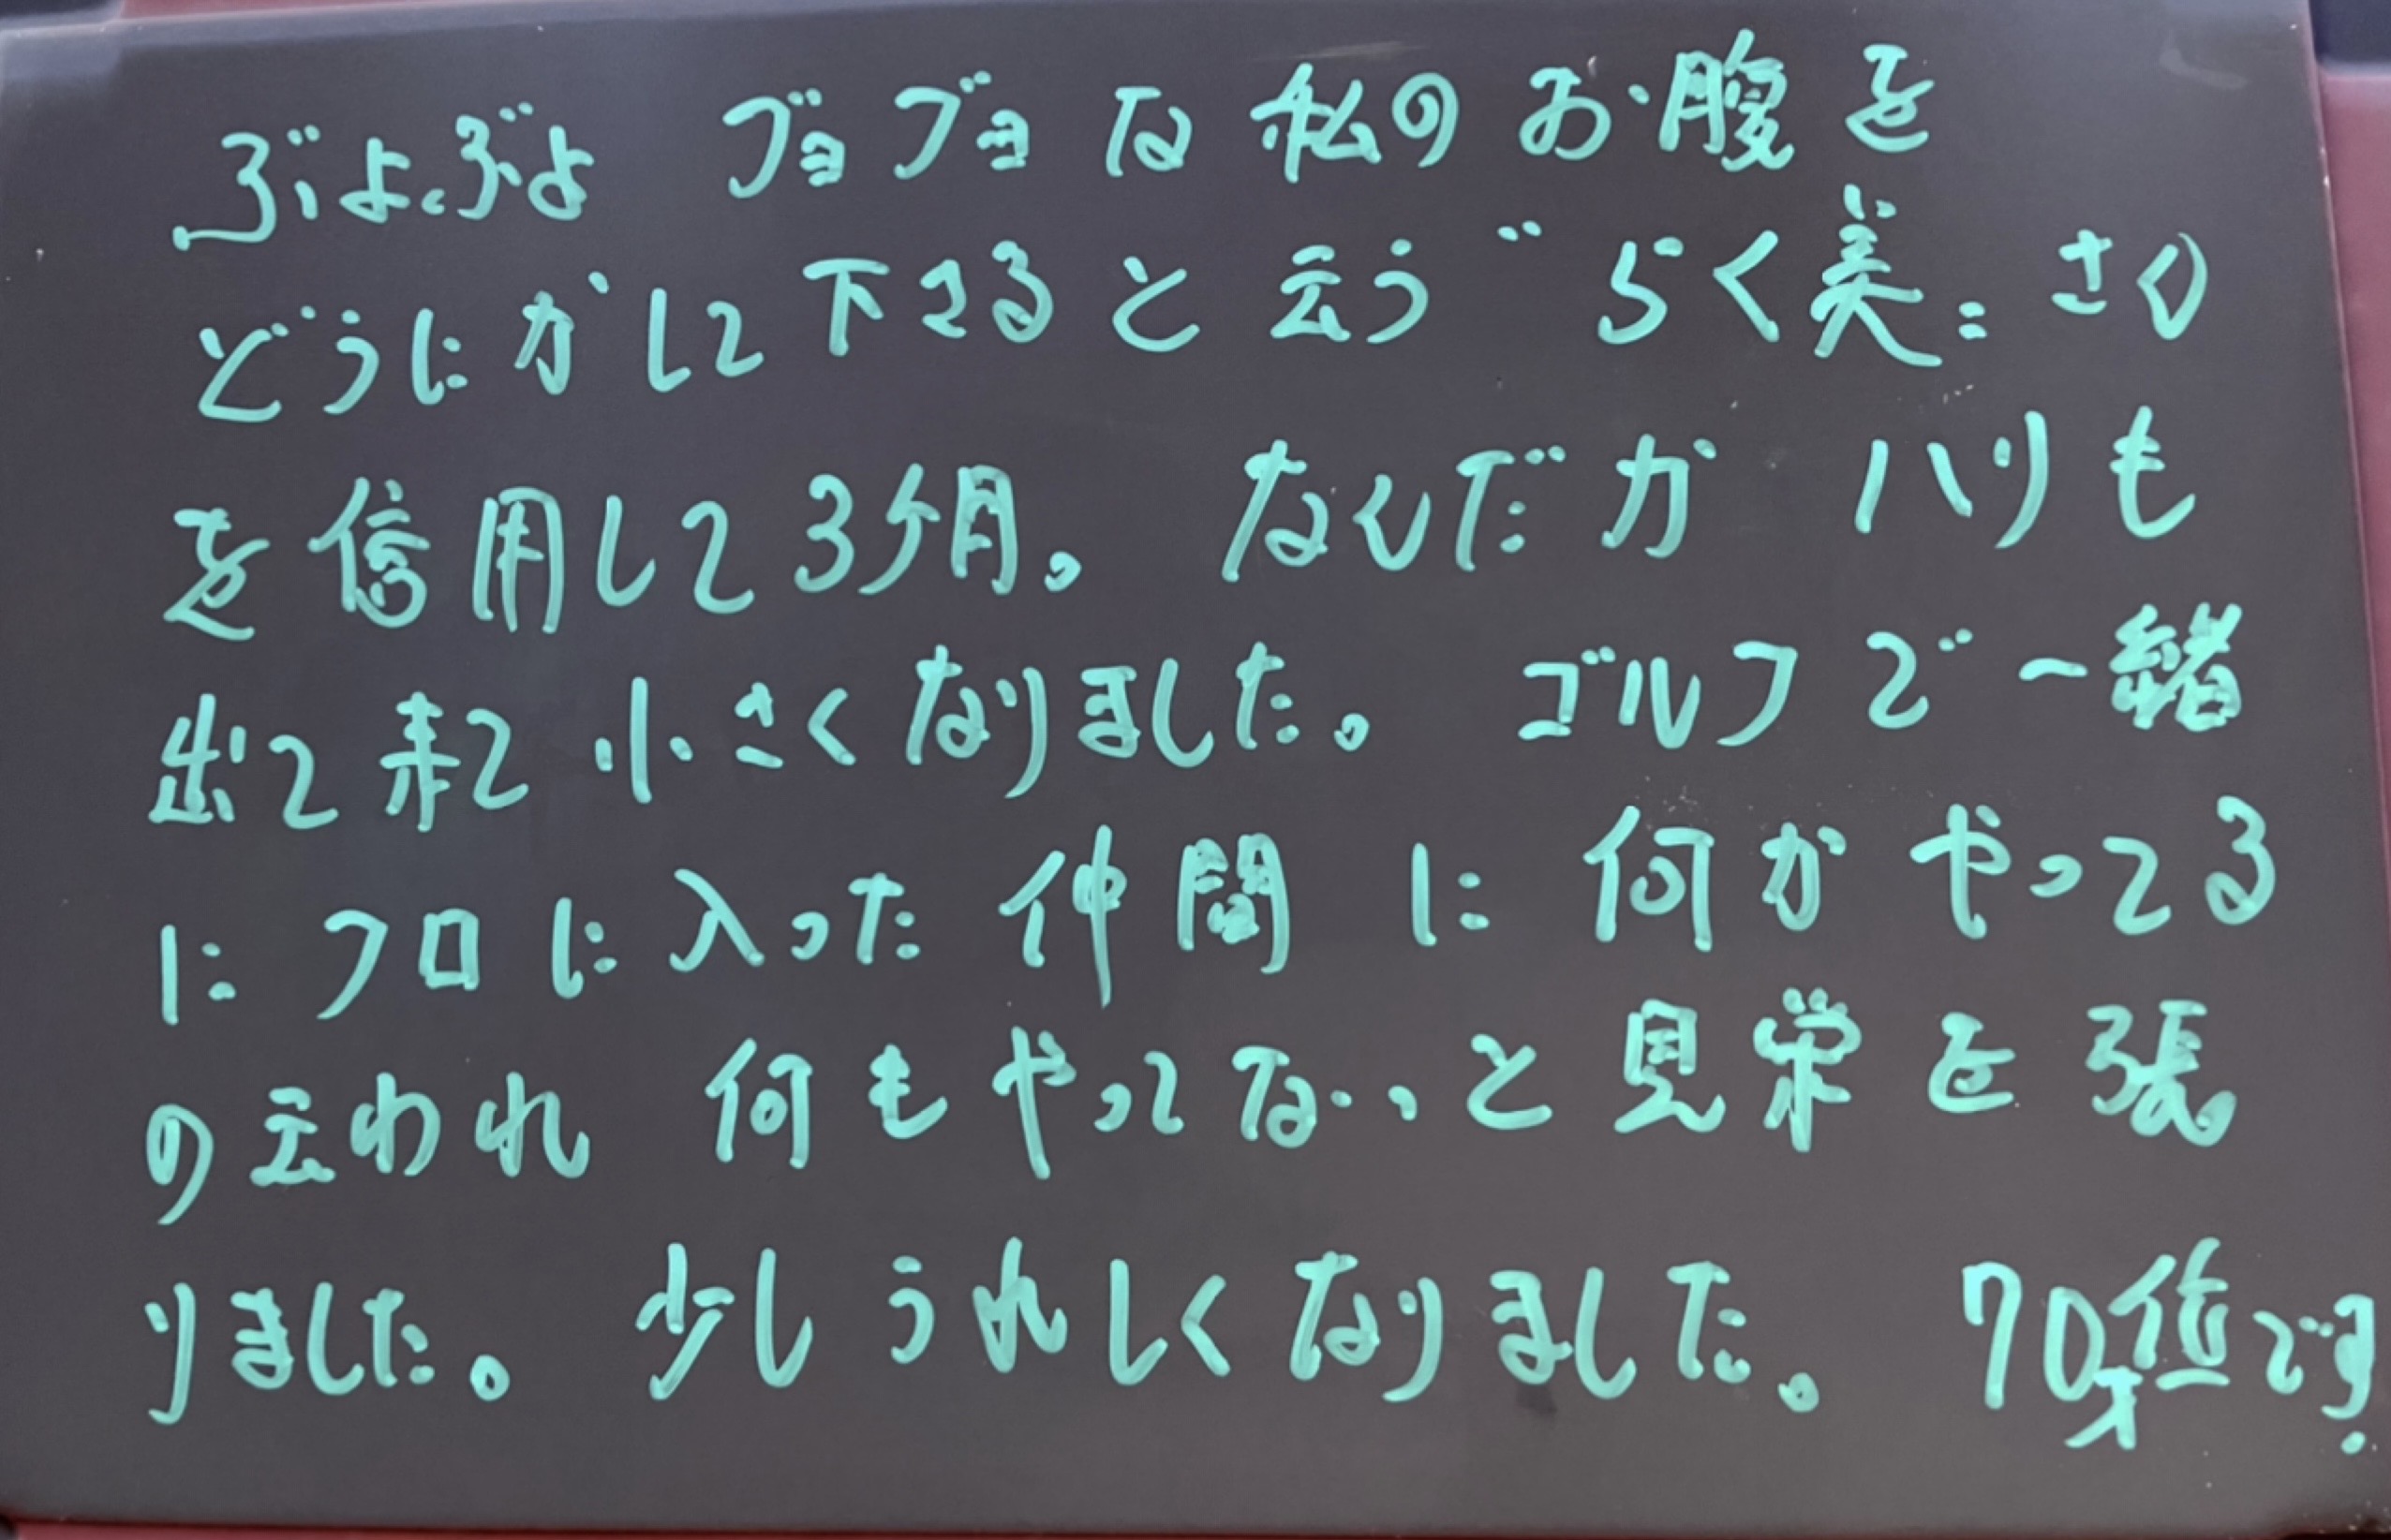 ぶよぶよ ブヨブヨな私のお腹を
どうにかして下さると云う〝らく美〟さん
を信用して3ヶ月。 なんだか ハリも
出て来て小さくなりました。 ゴルフで一緒
にフロに入った仲間に何かやってる
の云われ 何もやってないと見栄を張
りました。 少しうれしくなりました。 70才位です。